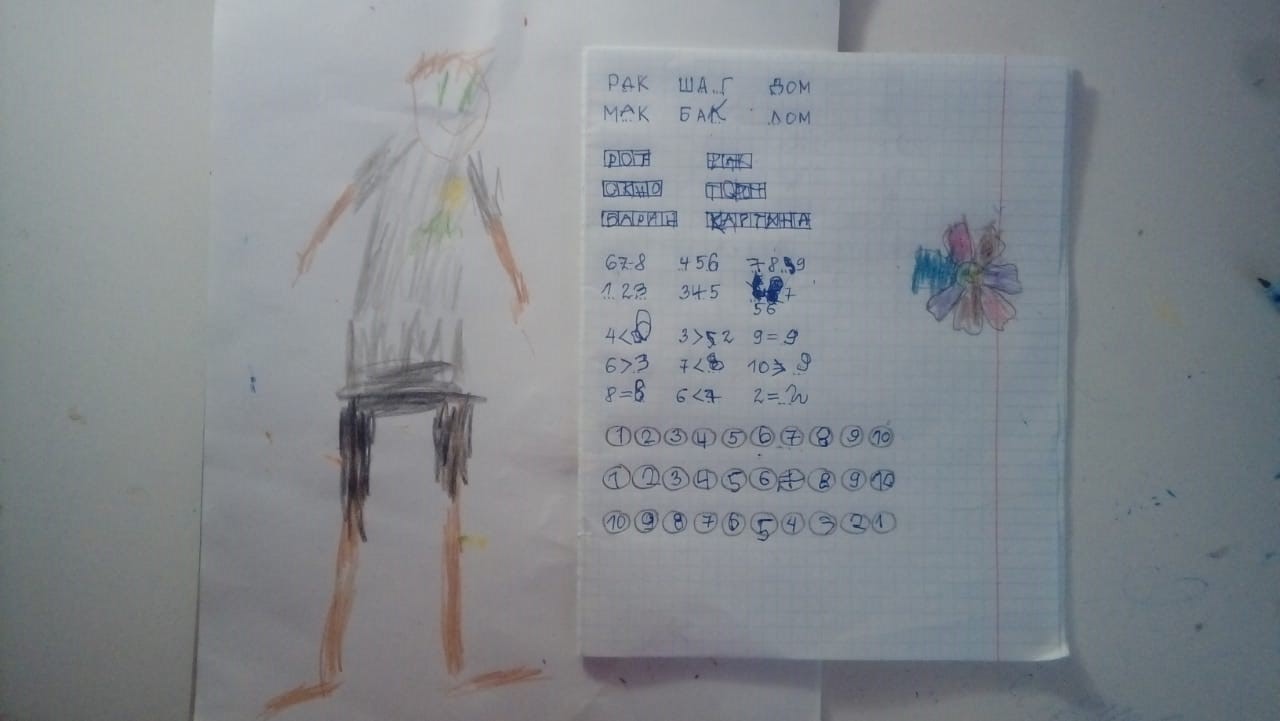 РАК ШАГ ДОМ
МАК БАК ЛОМ
РОТ РАК
ОКНО ТОРТ
БАРАН КАРТИНА
678 456 78 9
123 345 7
56
4< 3> 2 9=9
6>3 7<8 10>9
8=8 6<7 2=2
1 2 3 4 5 6 7 8 9 10
1 2 3 4 5 6 7 8 9 10
10 9 8 7 6 5 4 3 2 1